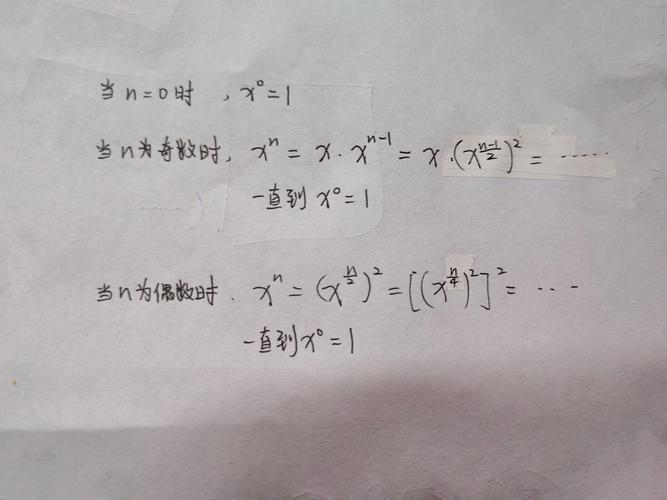 当n=0时，x⁰=1
当n为奇数时，xⁿ = x·xⁿ⁻¹ = x·(x^((n-1)/2))² = ······
一直到 x⁰=1
当n为偶数时、xⁿ = (x^(n/2))² = [(x^(n/4))²]² = ···
一直到x⁰=1